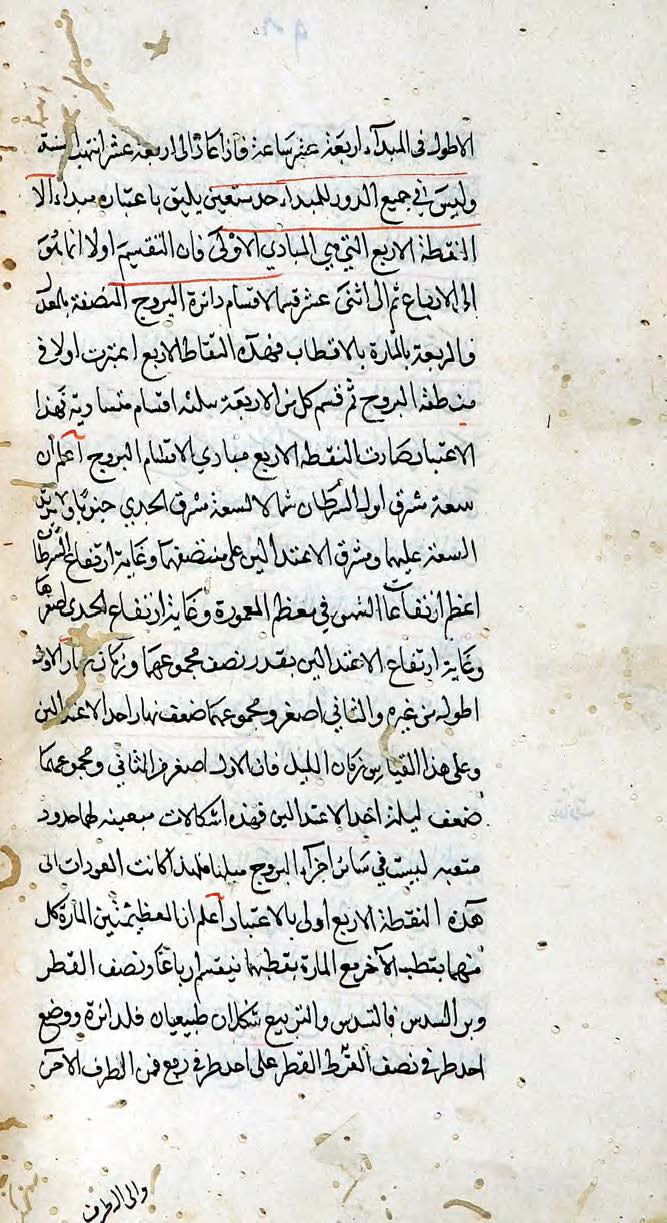 الاطول فى المبدآء اربعة عشر ساعة فاذا عاد الى اربعة عشر انتهت السنة
وليس فى جميع الدور للمبداء حد ستعين يليق باعتباره مبداء الا
النقطة الاربع التي هي المبادي الاولى فان التقسيم اولا انما هو
الى الارباع ثم الى اثنى عشر قسما لاقسام دائرة البروج المنصفة بالمعدل
والمربعة بالمارة بالاقطاب فهذه النقاط الاربع اعتبرت اولا فى
منطقة البروج ثم قسم كل من الاربعة بثلثة اقسام متساوية فهذا
الاعتبار صارت النقطه الاربع مبادي لاقسام البروج اعلم ان
سعة مشرق اول السرطان شمالا لسعة مشرق الجدي جنوبا ولا تزيد
السعة عليها ومشرق الاعتدالين على منتصفهما وغاية ارتفاع السرطان
اعظم ارتفاعات الشمس في معظم المعمورة وغاية ارتفاع الجدي اصغرها
وغاية ارتفاع الاعتدالين بقدر نصف مجموعهما وزمان نهار الاول
اطول من غيره والثاني اصغر ومجموعهما ضعف نهار احد الاعتدالين
وعلى هذا القياس زمان الليل فان الاول اصغر من الثاني ومجموعهما
ضعف ليلة احد الاعتدالين فهذه اشكالات معينه لها حدود
ليست في سائر اجزآء البروج مثلها فلهذا كانت العودات الى
هذه النقطة الاربع اولى بالاعتبار اعلم ان العظيمتين المارة كل
منهما بقطب الآخر مع المارة بقطبهما تنقسم ارباعا ونصف القطر
وتر السدس فالتسدس والتربيع شكلان طبيعيان فلدائرة ووضع
احد طرفى نصف القطر على احد طرفى ربع فمن الطرف الآخر
والى الطرف